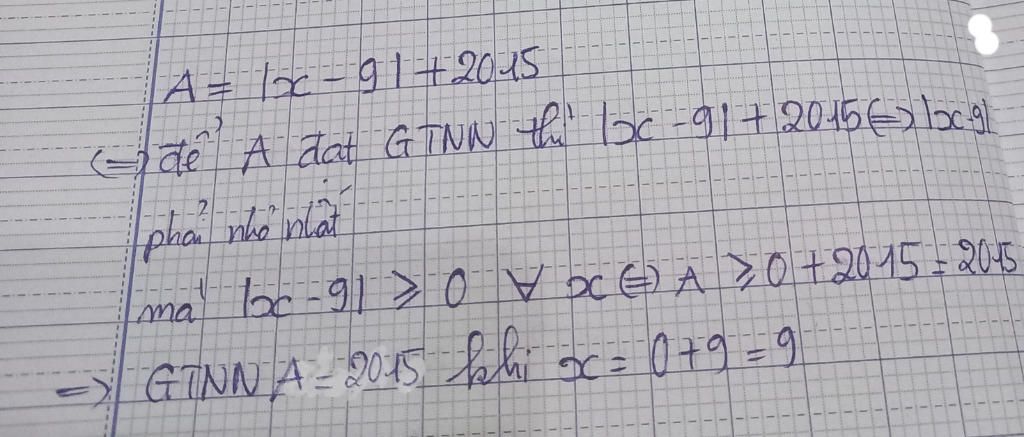 A = |x - 9| + 2015
<=> để A đạt GTNN thì |x - 9| + 2015 <=> |x-9|
phải nhỏ nhất
mà |x - 9| ≥ 0 ∀ x <=> A ≥ 0 + 2015 = 2015
=> GTNN A = 2015 khi x = 0 + 9 = 9